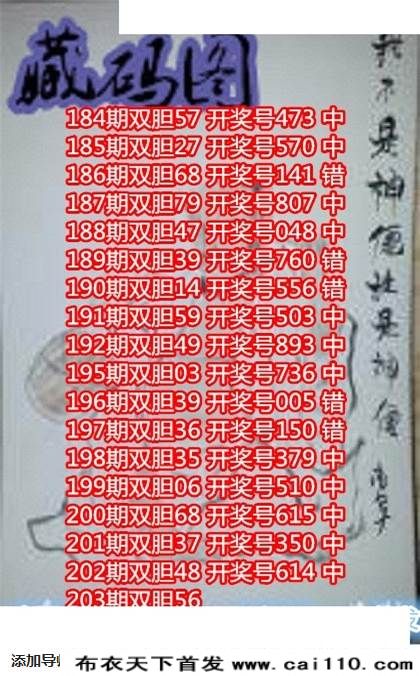 藏码图
我不是神便壮是神便
184期双胆57 开奖号473 中
185期双胆27 开奖号570 中
186期双胆68 开奖号141 错
187期双胆79 开奖号807 中
188期双胆47 开奖号048 中
189期双胆39 开奖号760 错
190期双胆14 开奖号556 错
191期双胆59 开奖号503 中
192期双胆49 开奖号893 中
195期双胆03 开奖号736 中
196期双胆39 开奖号005 错
197期双胆36 开奖号150 错
198期双胆35 开奖号379 中
199期双胆06 开奖号510 中
200期双胆68 开奖号615 中
201期双胆37 开奖号350 中
202期双胆48 开奖号614 中
203期双胆56
添加导
布衣天下首发 www.cai110.com